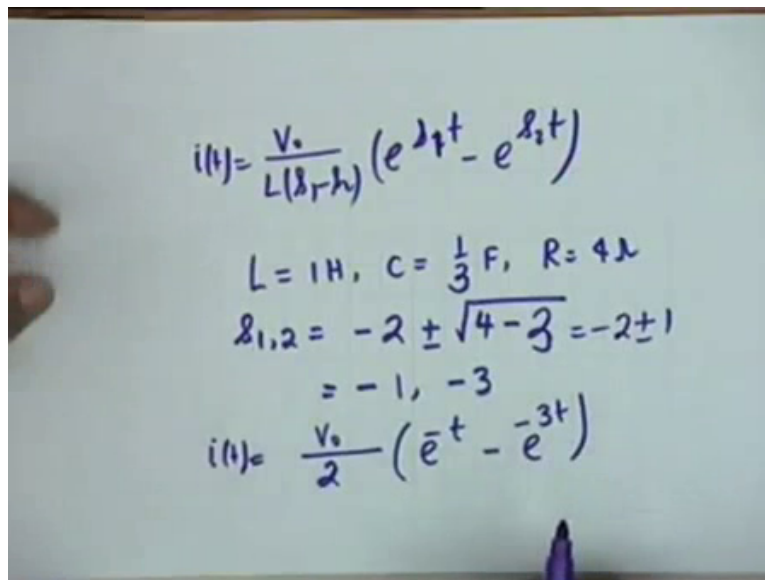 i(t)= V₀/L(s₁-s₂) (e^s₁t - e^s₂t)
L = 1H, C = 1/3 F, R = 4Ω
s₁,₂ = -2 ± √4-3 = -2±1
= -1, -3
i(t)= V₀/2 (e^-t - e^-3t)